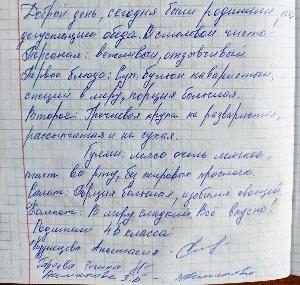 Добрый день, сегодня были родители на
дегустации обеда. В столовой чисто.
Персонал: вежливый, отзывчивый.
Первое блюдо: Суп, бульон наваристый,
специй в меру, порция большая.
Второе: Гречневая крупа не разваренная,
рассыпчатая и не сухая.
Гуляш: мясо очень мягкое,
тает во рту, без жировых прослоек.
Салат: Порция большая, изобилие овощей.
Компот: В меру сладкий. Всё вкусно!
Родители 4б класса:
Кузнецова Анастасия -